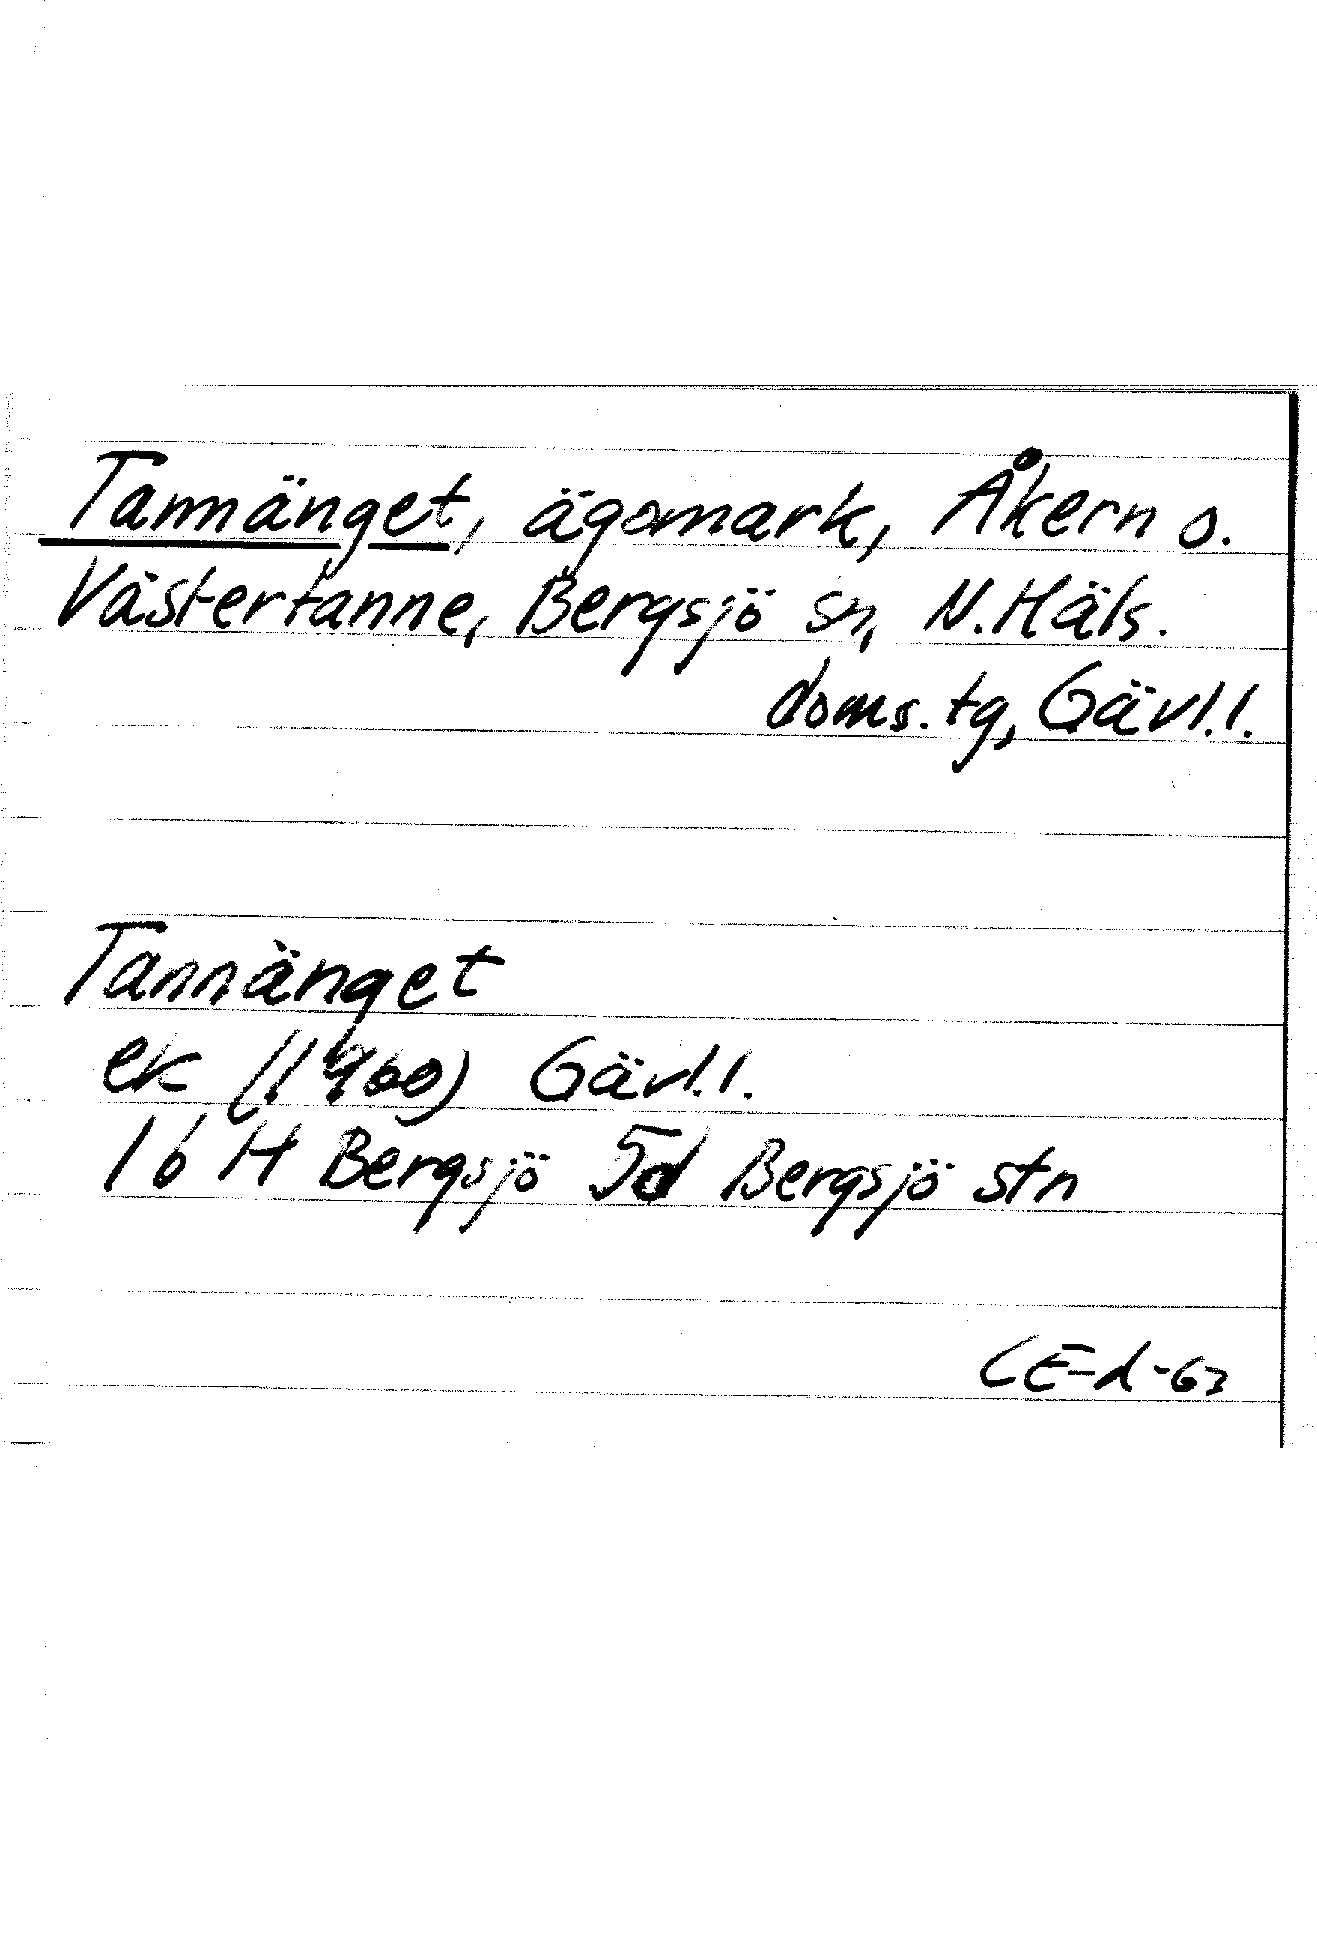 Tannänget, ägomark, Åkern o.
Västertanne, Bergsjö sn, N. Häls.
doms. tg, Gävl. l.
Tannänget
ek (1960) Gävl. l.
16 H Bergsjö 5d Bergsjö stn
CE-d-63